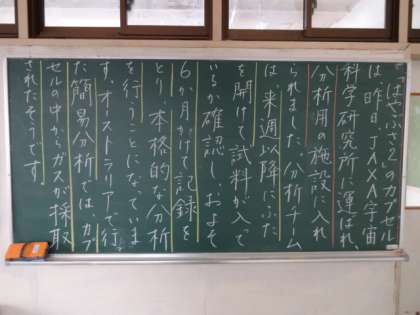 「はやぶさ2のカプセル
は、昨日、JAXA宇宙
科学研究所に運ばれ、
分析用の施設に入れ
られました。分析チーム
は、来週以降にふた
を開けて試料が入って
いるか確認し、およそ
6か月かけて記録を
とり、本格的な分析
を行うことになっていま
す。オーストラリアで行っ
た簡易分析では、カプ
セルの中からガスが採取
されたそうです。